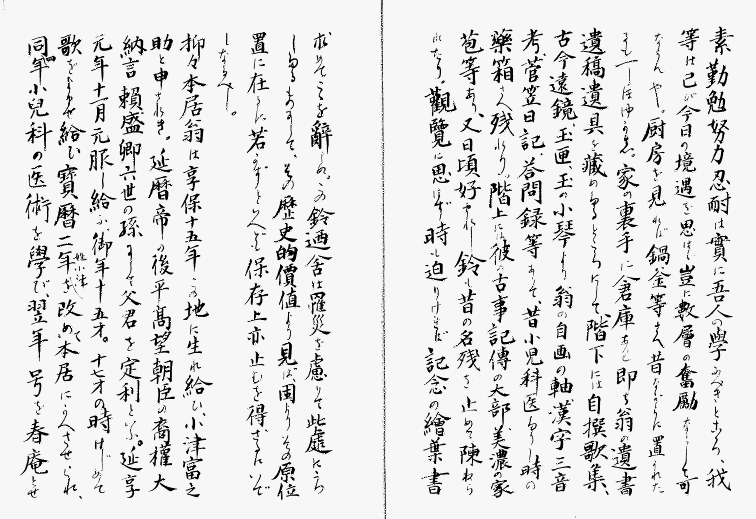 素、勤勉努力忍耐は實に吾人の學ぶべきところ、我
等は己が今日の境遇を思はゞ豈に數層の奮勵なくして可
ならんや。厨房を見れば鍋釜等さへ昔ながらに置かれた
家の裏手に倉庫あり即ち翁の遺書
遺稿遺具を藏めあるところにして階下には自撰歌集、
古今遠鏡、玉匣、玉の小琴より翁の自画の軸、漢字三音
考、菅笠日記、答問録等ありて、昔小児科医たりし時の
藥箱さへ残れり。階上には彼の古事記傳の大部、美濃の家
苞等あり、又日頃好まれし鈴も昔の名残を止めて陳ねら
れたり。觀覽に思はず時も迫りければ記念の繪葉書
求めてこゝを辭しぬ。この鈴迺舍は羅災を慮りて此處にうつ
しゝものにして、その歴史的價値より見ば、固よりその原位
置に在るに若かずといへども保存上亦止むを得ざるにいで
しならん。
抑々本居翁は享保十五年この地に生れ給ひ小津富之
助と申されき。延暦帝の後平髙望朝臣の裔權大
納言頼盛卿六世の孫にして父君を定利といふ。延享
元年十一月元服し給ふ御年十五才。十七才の時はじめて
歌をよませ給ひ寶暦二年姓小津を改めて本居にかへさせられ、
同年小兒科の医術を學び翌年号を春庵とせ